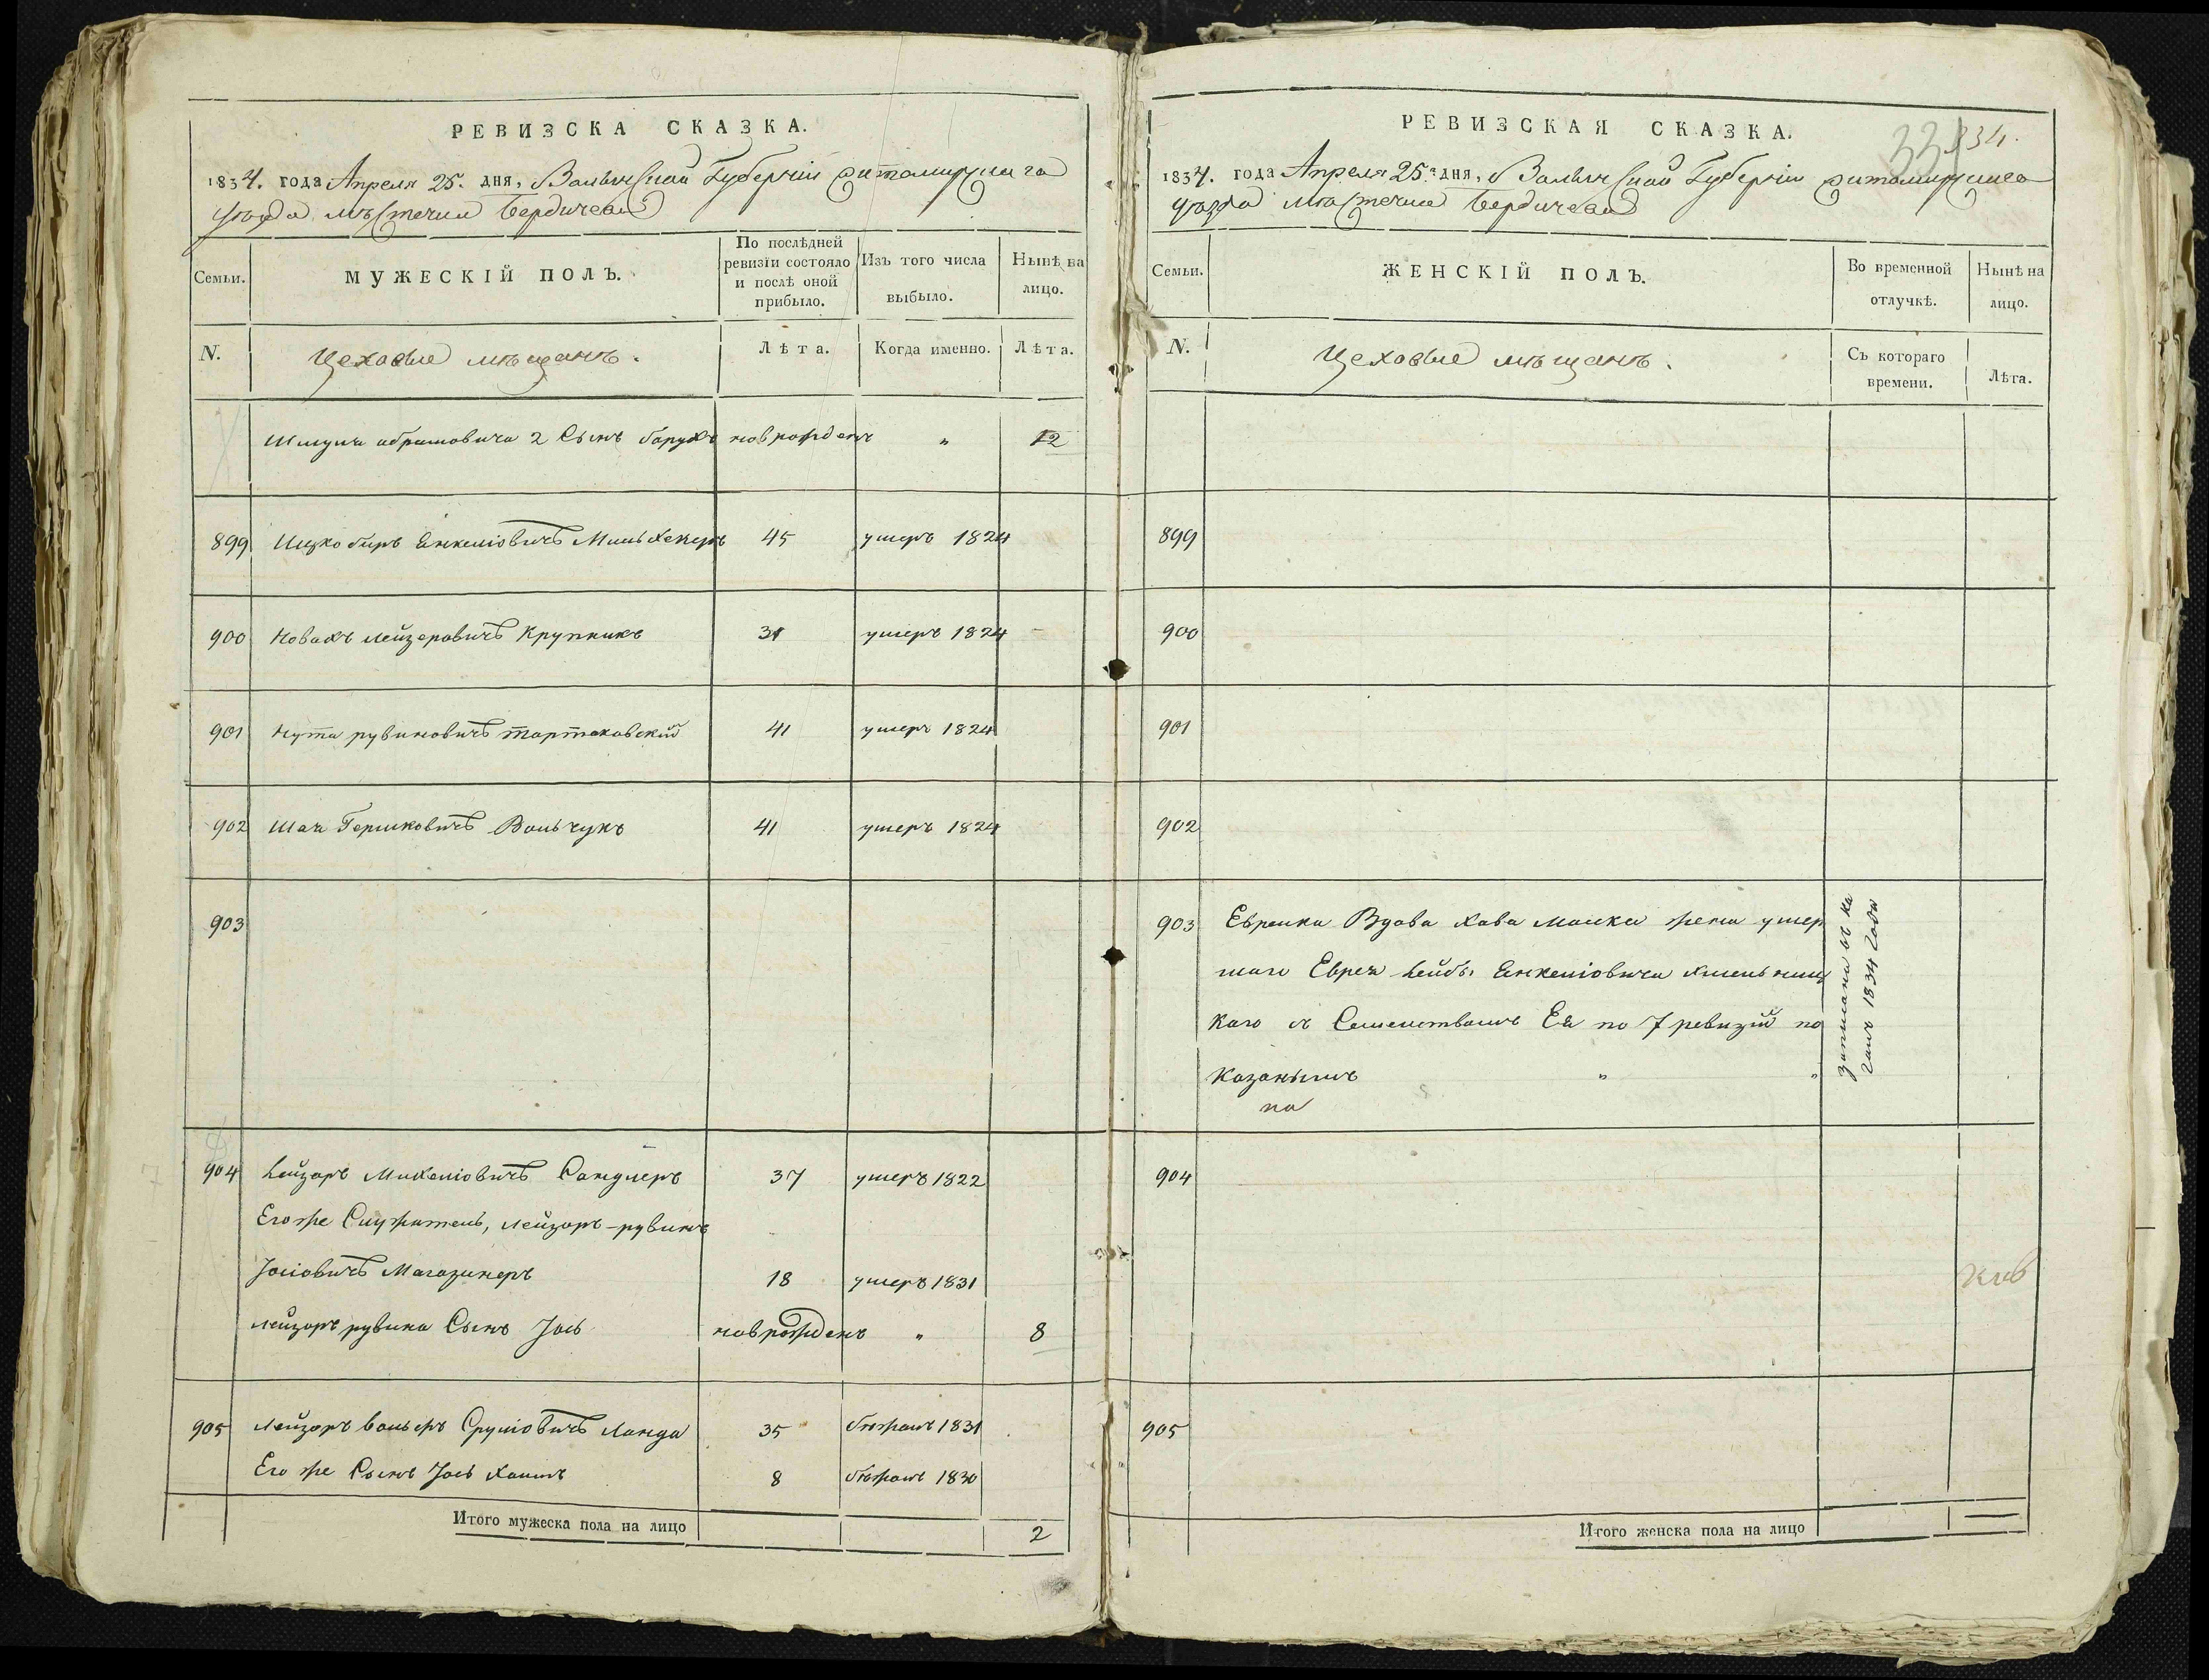 РЕВИЗСКА СКАЗКА.
1834. года Апреля 25. дня, Волынской Губерніи Житомирскаго
уѣзда мѣстечка Бердичева
Семьи.
МУЖЕСКІЙ ПОЛЪ.
По послѣдней ревизіи состояло и послѣ оной прибыло.
Изъ того числа выбыло.
Нынѣ на лицо.
N.
Цеховые мѣщанъ.
Лѣта.
Когда именно.
Лѣта.
Шмуля абрамовича 2 Сынъ борухъ новрожденъ " 12
899 Ицко беръ Енкеліовичъ Мильхекеръ 45 умеръ 1824
900 Новахъ лейзеровичъ Крупникъ 31 умеръ 1824
901 Нута рувиновичъ тартаковскій 41 умеръ 1824
902 Шая Гершковичъ Вольчукъ 41 умеръ 1824
903
904 Лейзоръ Михеліовичъ Сандлеръ 37 умеръ 1822
Егоже Служитель, лейзоръ-рувинъ
Іосіовичъ Магазинеръ 18 умеръ 1831
лейзоръ рувина Сынъ Іось новрожденъ " 8
905 лейзоръ вольфъ Сруліовичъ Ланда 35 бѣжалъ 1831
Его же Сынъ Іось Хаимъ 8 бѣжалъ 1830
Итого мужеска пола на лицо 2
РЕВИЗСКАЯ СКАЗКА.
334.
1834. года Апреля 25. дня, Волынской Губерніи Житомирскаго
уѣзда мѣстечка Бердичева
Семьи.
ЖЕНСКІЙ ПОЛЪ.
Во временной отлучкѣ.
Нынѣ на лицо.
N.
Цеховые мѣщанъ.
Съ котораго времени.
Лѣта.
899
900
901
902
903 Еврейка Вдова Хава Малка жена умер
шаго Еврея Лейбы Енкеліовича Хмельниц
каго съ Семействомъ Ея по 7 ревизій по
казанымъ " "
на
записана въ ка
галъ 1834 года
904
905
Итого женска пола на лицо —